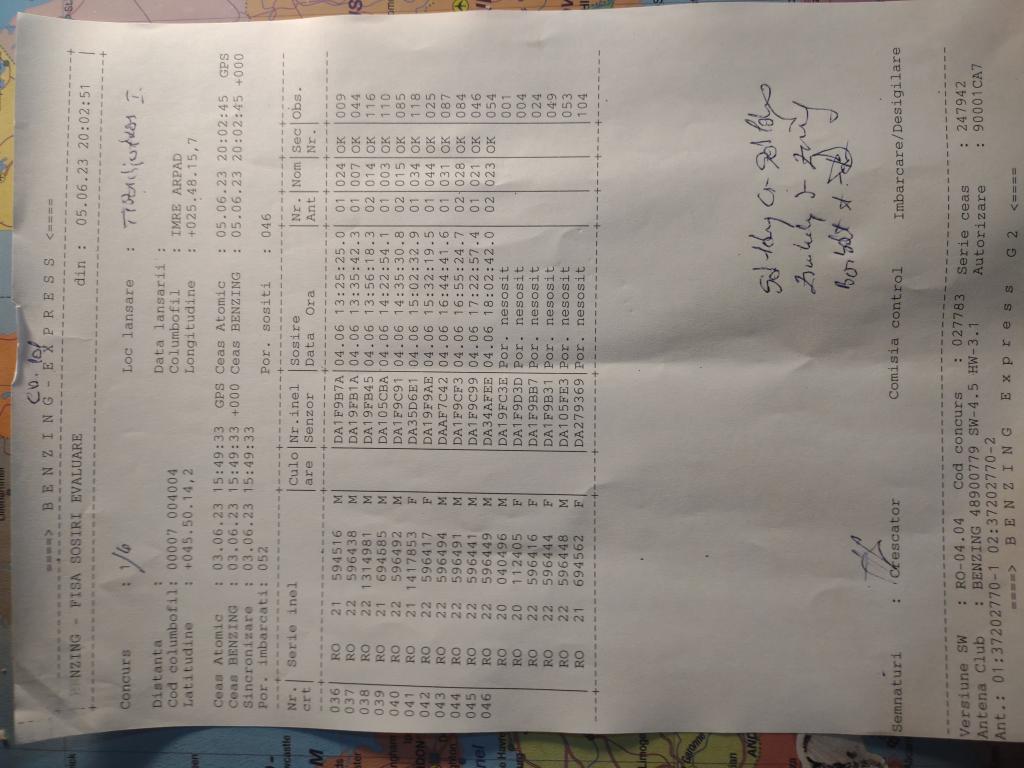 ====> B E N Z I N G - E X P R E S S <====
NZING - FISA SOSIRI EVALUARE din : 05.06.23 20:02:51
Concurs : 1/6 Loc lansare :
Distanta : Data lansarii :
Cod columbofil: 00007 004004 Columbofil : IMRE ARPAD
Latitudine : +045.50.14,2 Longitudine : +025.48.15,7
Ceas Atomic : 03.06.23 15:49:33 GPS Ceas Atomic : 05.06.23 20:02:45 GPS
Ceas BENZING : 03.06.23 15:49:33 +000 Ceas BENZING : 05.06.23 20:02:45 +000
Sincronizare : 03.06.23 15:49:33
Por. imbarcati: 052 Por. sositi : 046
Nr. | Serie inel |Culo|Nr.inel |Sosire |Nr. |Nom |Sec |Obs.
crt | |are |Senzor |Data Ora |Ant | |Nr. |
036 | RO 21 594516 M | |DA1F9B7A |04.06 13:25:25.0 | 01 |024 |OK | 009
037 | RO 22 596438 M | |DA19FB1A |04.06 13:35:42.3 | 01 |007 |OK | 044
038 | RO 22 1314981 M | |DA19FB45 |04.06 13:56:18.3 | 02 |014 |OK | 116
039 | RO 21 694685 M | |DA105CBA |04.06 14:22:54.1 | 01 |003 |OK | 110
040 | RO 22 596492 M | |DA1F9C91 |04.06 14:35:30.8 | 02 |015 |OK | 085
041 | RO 21 1417853 F | |DA35D6E1 |04.06 15:02:32.9 | 01 |034 |OK | 118
042 | RO 22 596417 F | |DA19F9AE |04.06 15:32:19.5 | 01 |044 |OK | 025
043 | RO 22 596494 M | |DAAF7C42 |04.06 16:44:41.6 | 01 |031 |OK | 087
044 | RO 22 596491 M | |DA1F9CF3 |04.06 16:55:24.7 | 02 |028 |OK | 084
045 | RO 22 596441 M | |DA1F9C99 |04.06 17:22:57.4 | 01 |021 |OK | 046
046 | RO 22 596449 M | |DA34AFEE |04.06 18:02:42.0 | 02 |023 |OK | 054
| RO 20 040496 M | |DA19FC3E |Por. nesosit | | | | 001
| RO 20 112405 F | |DA1F9D3D |Por. nesosit | | | | 004
| RO 22 596416 F | |DA1F9BB7 |Por. nesosit | | | | 024
| RO 22 596444 F | |DA1F9B31 |Por. nesosit | | | | 049
| RO 22 596448 M | |DA105FE3 |Por. nesosit | | | | 053
| RO 21 694562 F | |DA279369 |Por. nesosit | | | | 104
Semnaturi : Crescator Comisia control Imbarcare/Desigilare
Versiune SW : RO-04.04 Cod concurs : 027783 Serie ceas : 247942
Antena Club : BENZING 48900779 SW-4.5 HW-3.1 Autorizare : 90001CA7
Ant.: 01:37202770-1 02:37202770-2
====> B E N Z I N G E X P R E S S G 2 <====